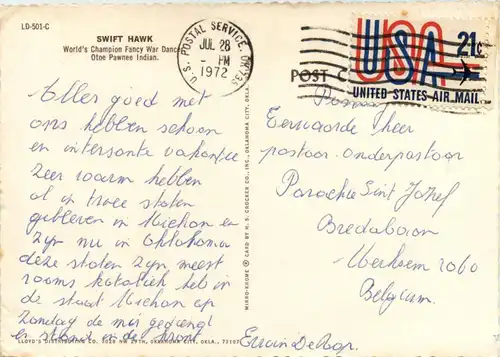 LD-501-C
SWIFT HAWK
World's Champion Fancy War Dancer
Otoe Pawnee Indian.
U.S. POSTAL SERVICE, OK 735
JUL 28
- PM
1972
USA 21c
UNITED STATES AIR MAIL
POST C
Alles goed met
ons hebben schoon
en intersante vakantie
zeer warm hebben
al in twee staten
gebleven in Michan en
zijn nu in Oklahoma
deze staten zijn meest
rooms katoliek heb in
de staat Michan op
Zondag de mis gezongt
en in de krant
Eerwaarde Heer
pastoor. onderpastoor
Parochie Sint Jozef
Bredabaan
Merksem 2060
Belgium.
MIRRO-KROME ® CARD BY H. S. CROCKER CO., INC., OKLAHOMA CITY, OKLA.
LLOYD'S DISTRIBUTING CO. 3020 NW 19TH, OKLAHOMA CITY, OKLA. 73107